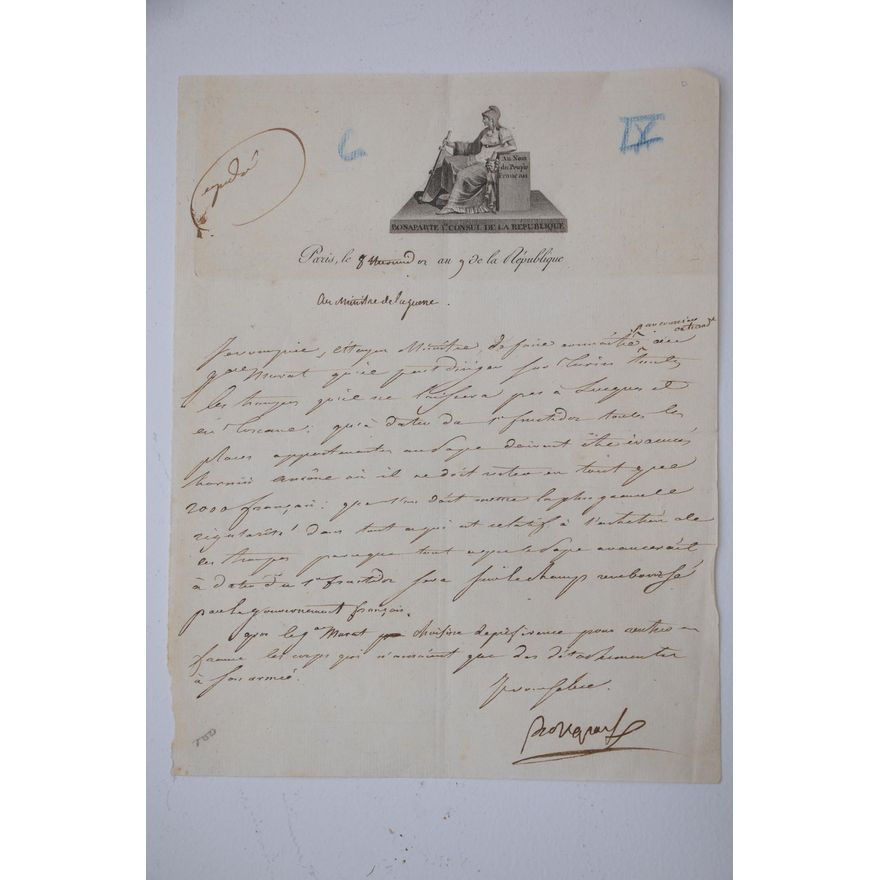 expédié
6
IX
Au Nom
du Peuple
Français
BONAPARTE 1er CONSUL DE LA REPUBLIQUE
Paris, le 8 or an 9 de la République
Au Ministre de la guerre.
par un courrier
Je vous prie, citoyen Ministre, de faire connaître au
gal Murat qu'il peut diriger sur Turin toutes
les troupes qu'il ne laissera pas à Lucques et
en Toscane: qu'à dater du 1er fructidor toutes les
places appartenantes au Pape doivent être évacuées
hormis ancône où il ne doit rester en tout que
2000 français: que l'on doit mettre la plus grande
régularité dans tout ce qui est relatif à l'entretien de
ces troupes parce que tout ce que le Pape avancerait
à dater du 1er fructidor sera sur le champ remboursé
par le gouvernement français.
que le gal Murat choisisse de préférence pour rentrer en
france les corps qui n'auraient que des détachements
à son armée.
Je vous salue.